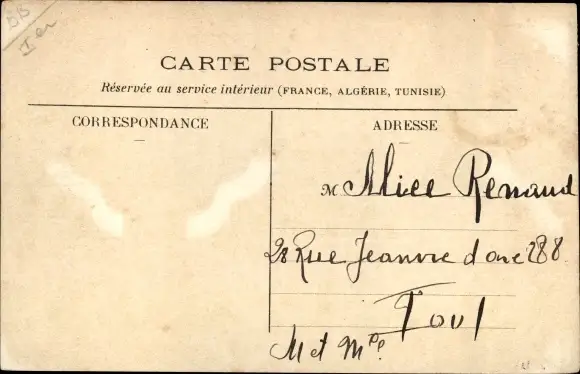 BB
CARTE POSTALE
Réservée au service intérieur (FRANCE, ALGÉRIE, TUNISIE)
CORRESPONDANCE
ADRESSE
M Alice Renaud
28 Rue Jeanne d arc 288
Toul
M et Mme